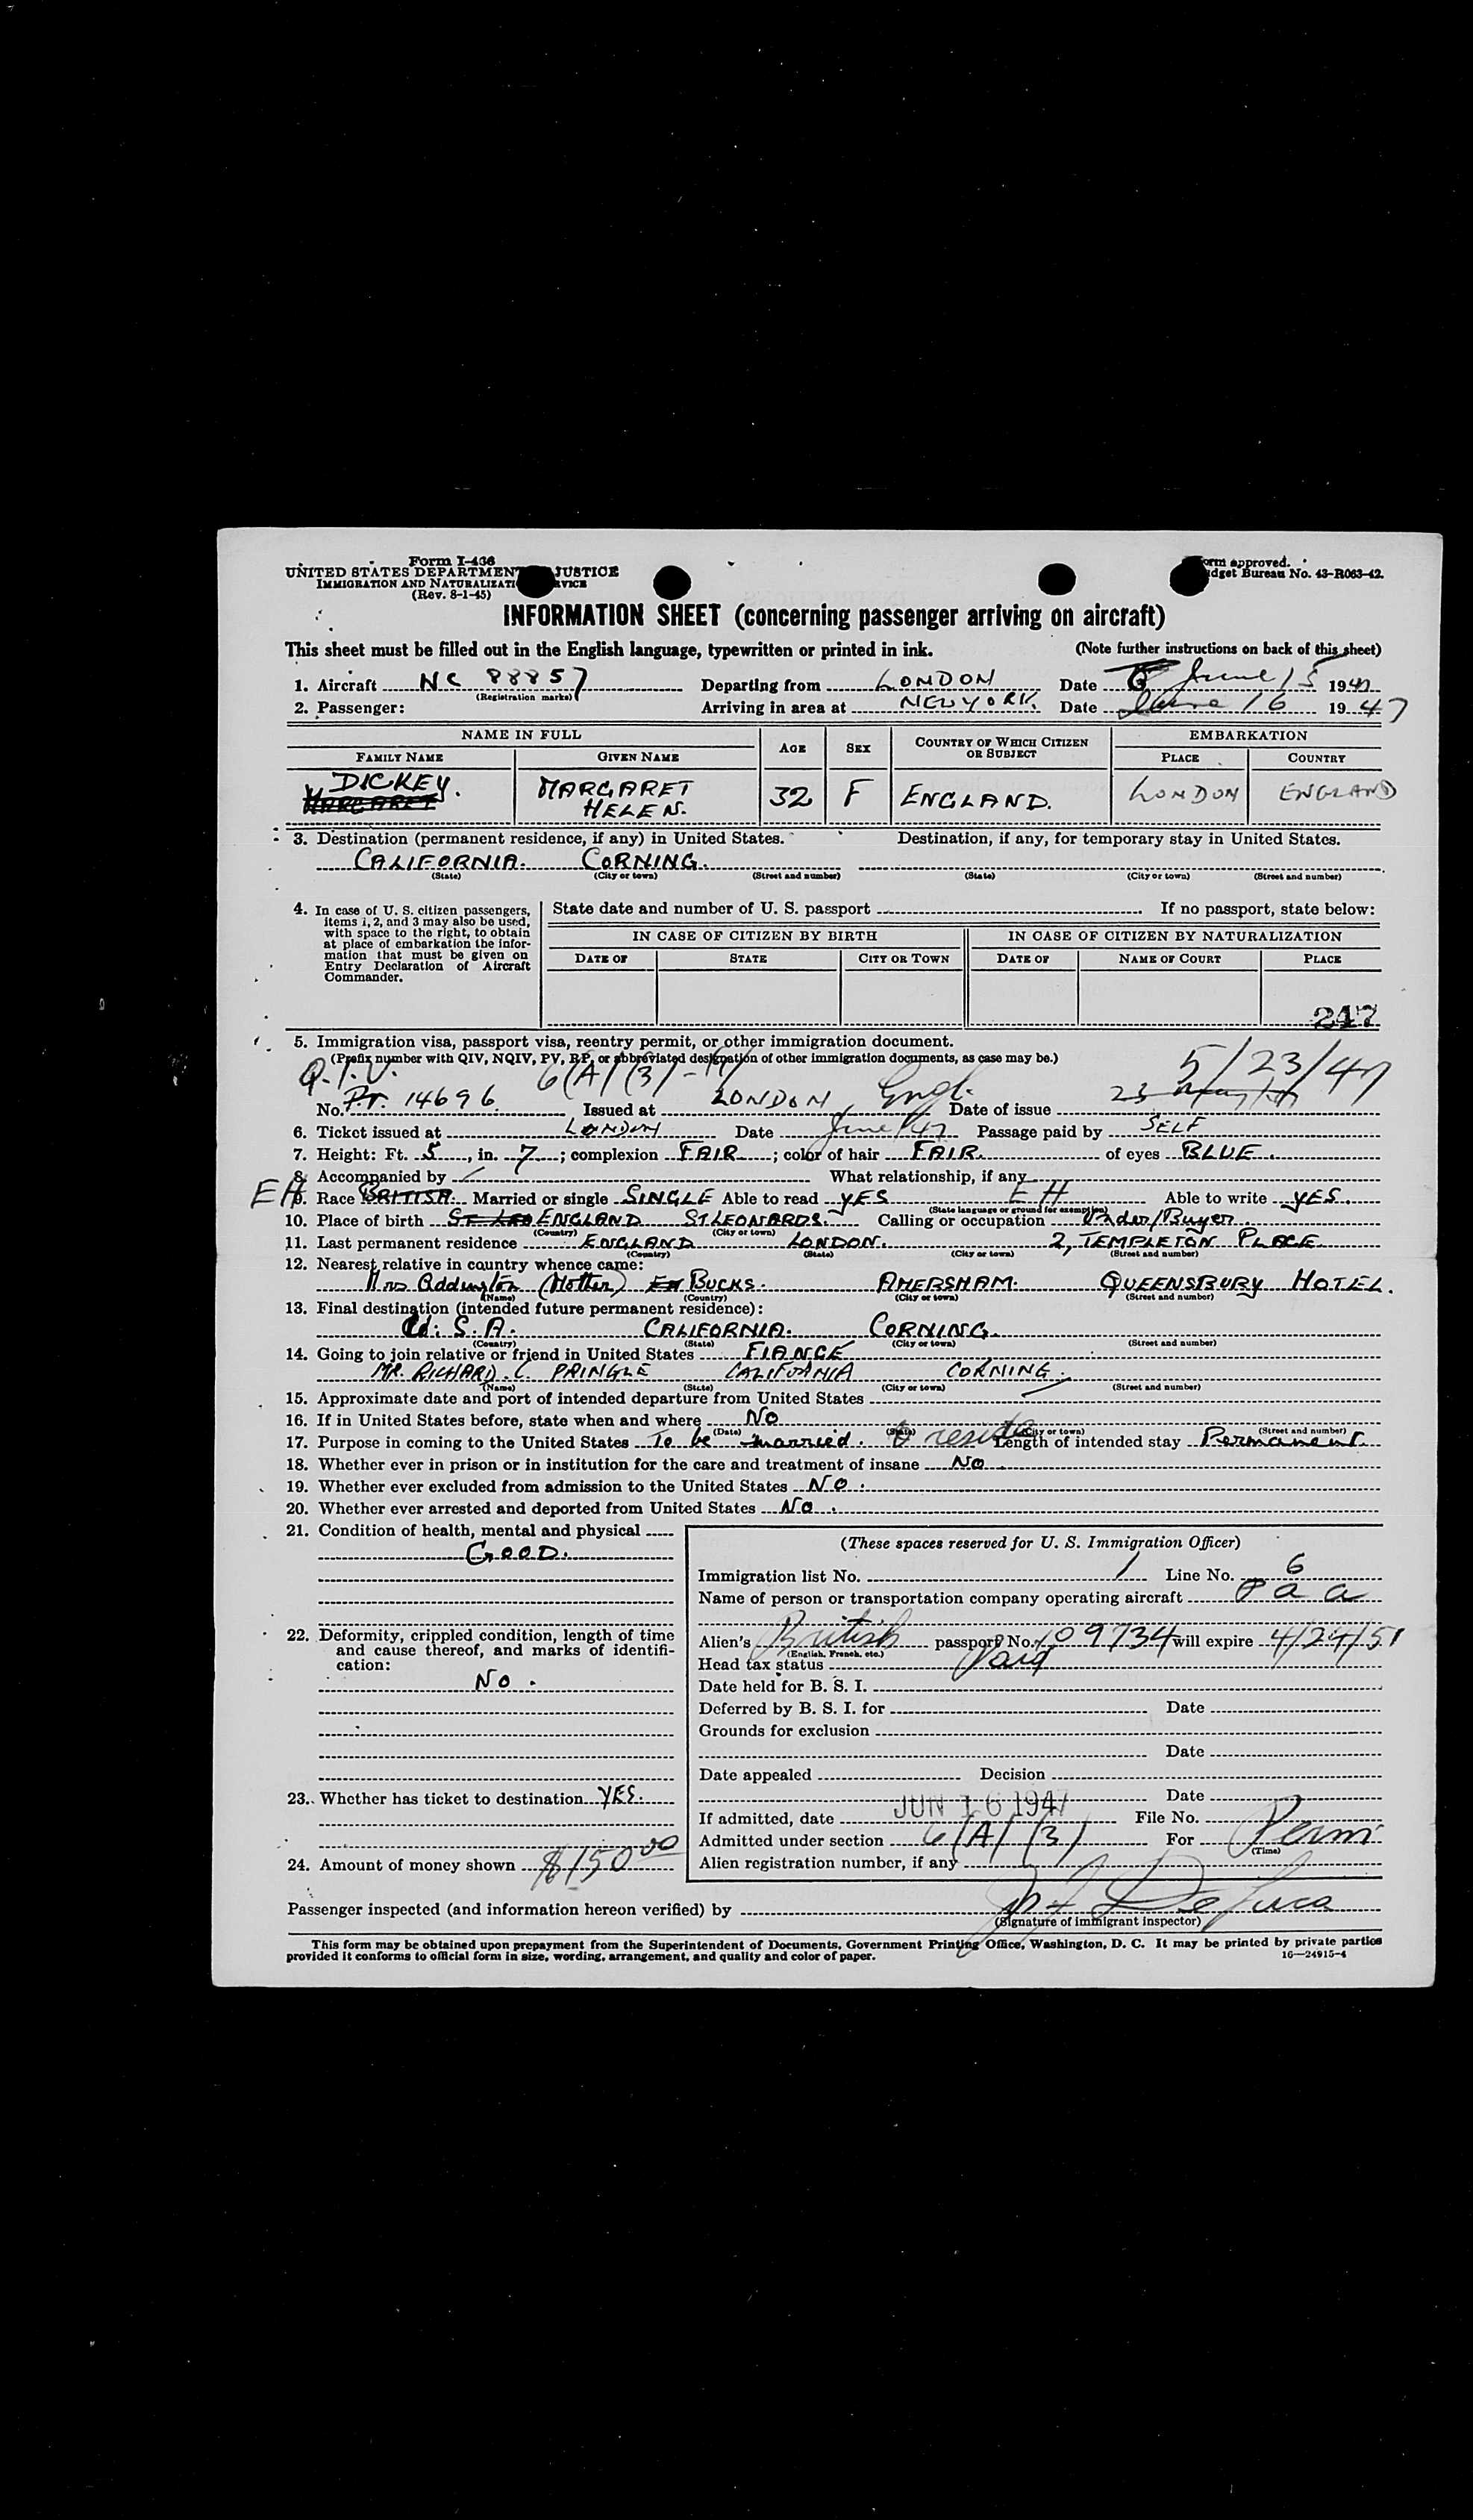 Form I-436
UNITED STATES DEPARTMENT JUSTICE
IMMIGRATION AND
(Rev. 8-1-45)
approved.
Bureau No. 43-R063-42.
INFORMATION SHEET (concerning passenger arriving on aircraft)
This sheet must be filled out in the English language, typewritten or printed in ink. (Note further instructions on back of this sheet)
1. Aircraft NC 88857 Departing from LONDON Date June 15 1947
(Registration marks)
2. Passenger: Arriving in area at NEW YORK. Date June 16 1947
NAME IN FULL AGE SEX COUNTRY OF WHICH CITIZEN OR SUBJECT EMBARKATION
FAMILY NAME GIVEN NAME PLACE COUNTRY
DICKEY. MARGARET 32 F ENGLAND. LONDON ENGLAND
MARGARET HELEN.
3. Destination (permanent residence, if any) in United States. Destination, if any, for temporary stay in United States.
CALIFORNIA. CORNING.
(State) (City or town) (Street and number) (State) (City or town) (Street and number)
4. In case of U. S. citizen passengers,
items 1, 2, and 3 may also be used,
with space to the right, to obtain
at place of embarkation the infor-
mation that must be given on
Entry Declaration of Aircraft
Commander.
State date and number of U. S. passport If no passport, state below:
IN CASE OF CITIZEN BY BIRTH IN CASE OF CITIZEN BY NATURALIZATION
DATE OF STATE CITY OR TOWN DATE OF NAME OF COURT PLACE
247
5. Immigration visa, passport visa, reentry permit, or other immigration document.
(Prefix number with QIV, NQIV, PV, RP, or abbreviated designation of other immigration documents, as case may be.)
Q.I.V. 6(A)(3) 5/23/47
No. 14696 Issued at LONDON Engl. Date of issue 23
6. Ticket issued at LONDON Date June/47 Passage paid by SELF
7. Height: Ft. 5, in. 7; complexion FAIR; color of hair FAIR. of eyes BLUE.
8. Accompanied by What relationship, if any
EH 9. Race BRITISH. Married or single SINGLE Able to read YES EH Able to write YES.
(State language or ground for exemption)
10. Place of birth ENGLAND ST LEONARDS. Calling or occupation /Buyer
(Country) (City or town)
11. Last permanent residence ENGLAND LONDON. 2, TEMPLETON PLACE
(Country) (State) (City or town) (Street and number)
12. Nearest relative in country whence came:
Mrs Addington (Mother) BUCKS. AMERSHAM. QUEENSBURY HOTEL.
(Name) (Country) (City or town) (Street and number)
13. Final destination (intended future permanent residence):
S. A. CALIFORNIA. CORNING.
(Country) (State) (City or town) (Street and number)
14. Going to join relative or friend in United States FIANCÉ
MR. RICHARD. C. PRINGLE CALIFORNIA CORNING.
(Name) (State) (City or town) (Street and number)
15. Approximate date and port of intended departure from United States
16. If in United States before, state when and where NO
(Date) (State) (City or town) (Street and number)
17. Purpose in coming to the United States To be married. to reside Length of intended stay Permanent.
18. Whether ever in prison or in institution for the care and treatment of insane NO
19. Whether ever excluded from admission to the United States NO.
20. Whether ever arrested and deported from United States NO.
21. Condition of health, mental and physical
GOOD.
22. Deformity, crippled condition, length of time
and cause thereof, and marks of identifi-
cation:
NO.
23. Whether has ticket to destination YES.
24. Amount of money shown $150 00
(These spaces reserved for U. S. Immigration Officer)
Immigration list No. 1 Line No. 6
Name of person or transportation company operating aircraft P a a
Alien's British passport No. 109734 will expire 4/24/51
(English, French, etc.)
Head tax status Paid
Date held for B. S. I.
Deferred by B. S. I. for Date
Grounds for exclusion
Date
Date appealed Decision
Date
If admitted, date JUN 16 1947 File No.
Admitted under section 6(A)(3) For Perm
(Time)
Alien registration number, if any
Passenger inspected (and information hereon verified) by De Luca
(Signature of immigrant inspector)
This form may be obtained upon prepayment from the Superintendent of Documents, Government Printing Office, Washington, D. C. It may be printed by private parties
provided it conforms to official form in size, wording, arrangement, and quality and color of paper. 16—24915-4